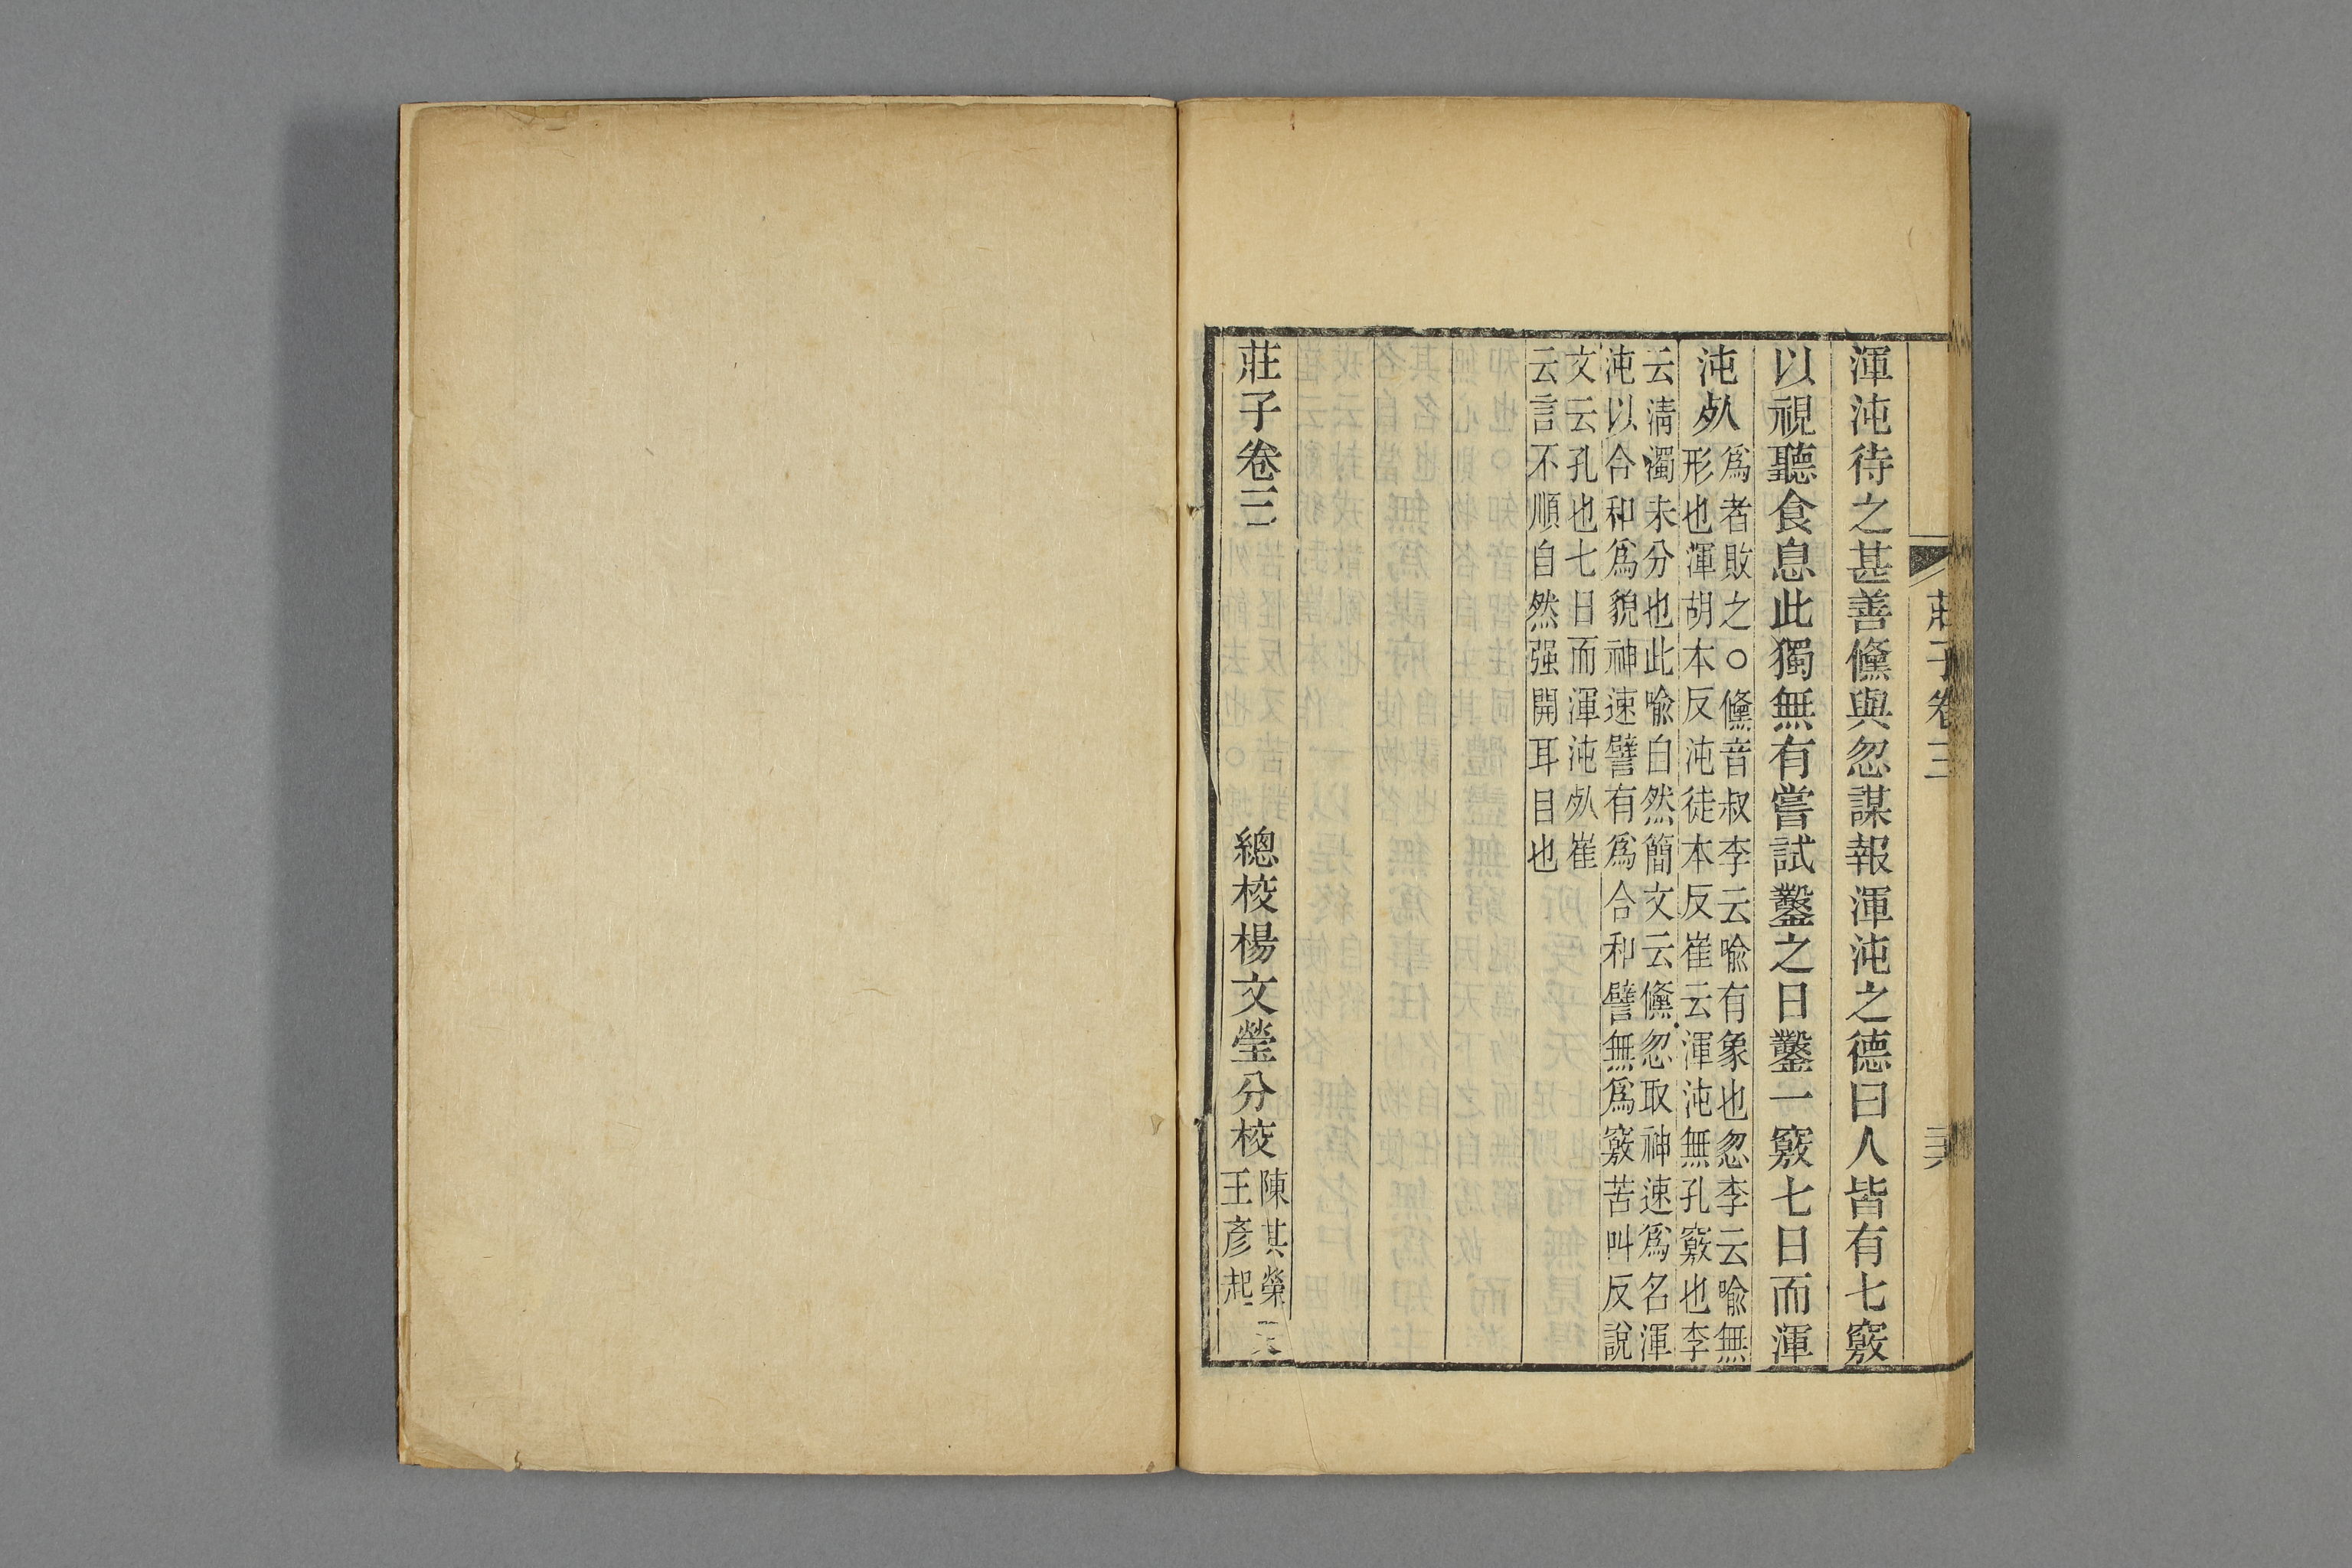 渾沌待之甚善儵與忽謀報渾沌之德曰人皆有七竅
以視聽食息此獨無有嘗試鑿之日鑿一竅七日而渾
沌𣦸
爲者敗之○儵音叔李云喩有象也忽李云喩無
形也渾胡本反沌徒本反崔云渾沌無孔竅也李
云淸濁未分也此喩自然簡文云儵忽取神速爲名渾
沌以合和爲貌神速譬有爲合和譬無爲竅苦叫反說
文云孔也七日而渾沌𣦸崔
云言不順自然强開耳目也
莊子卷三
總校楊文瑩分校
陳其榮
王彥起
莊子卷三